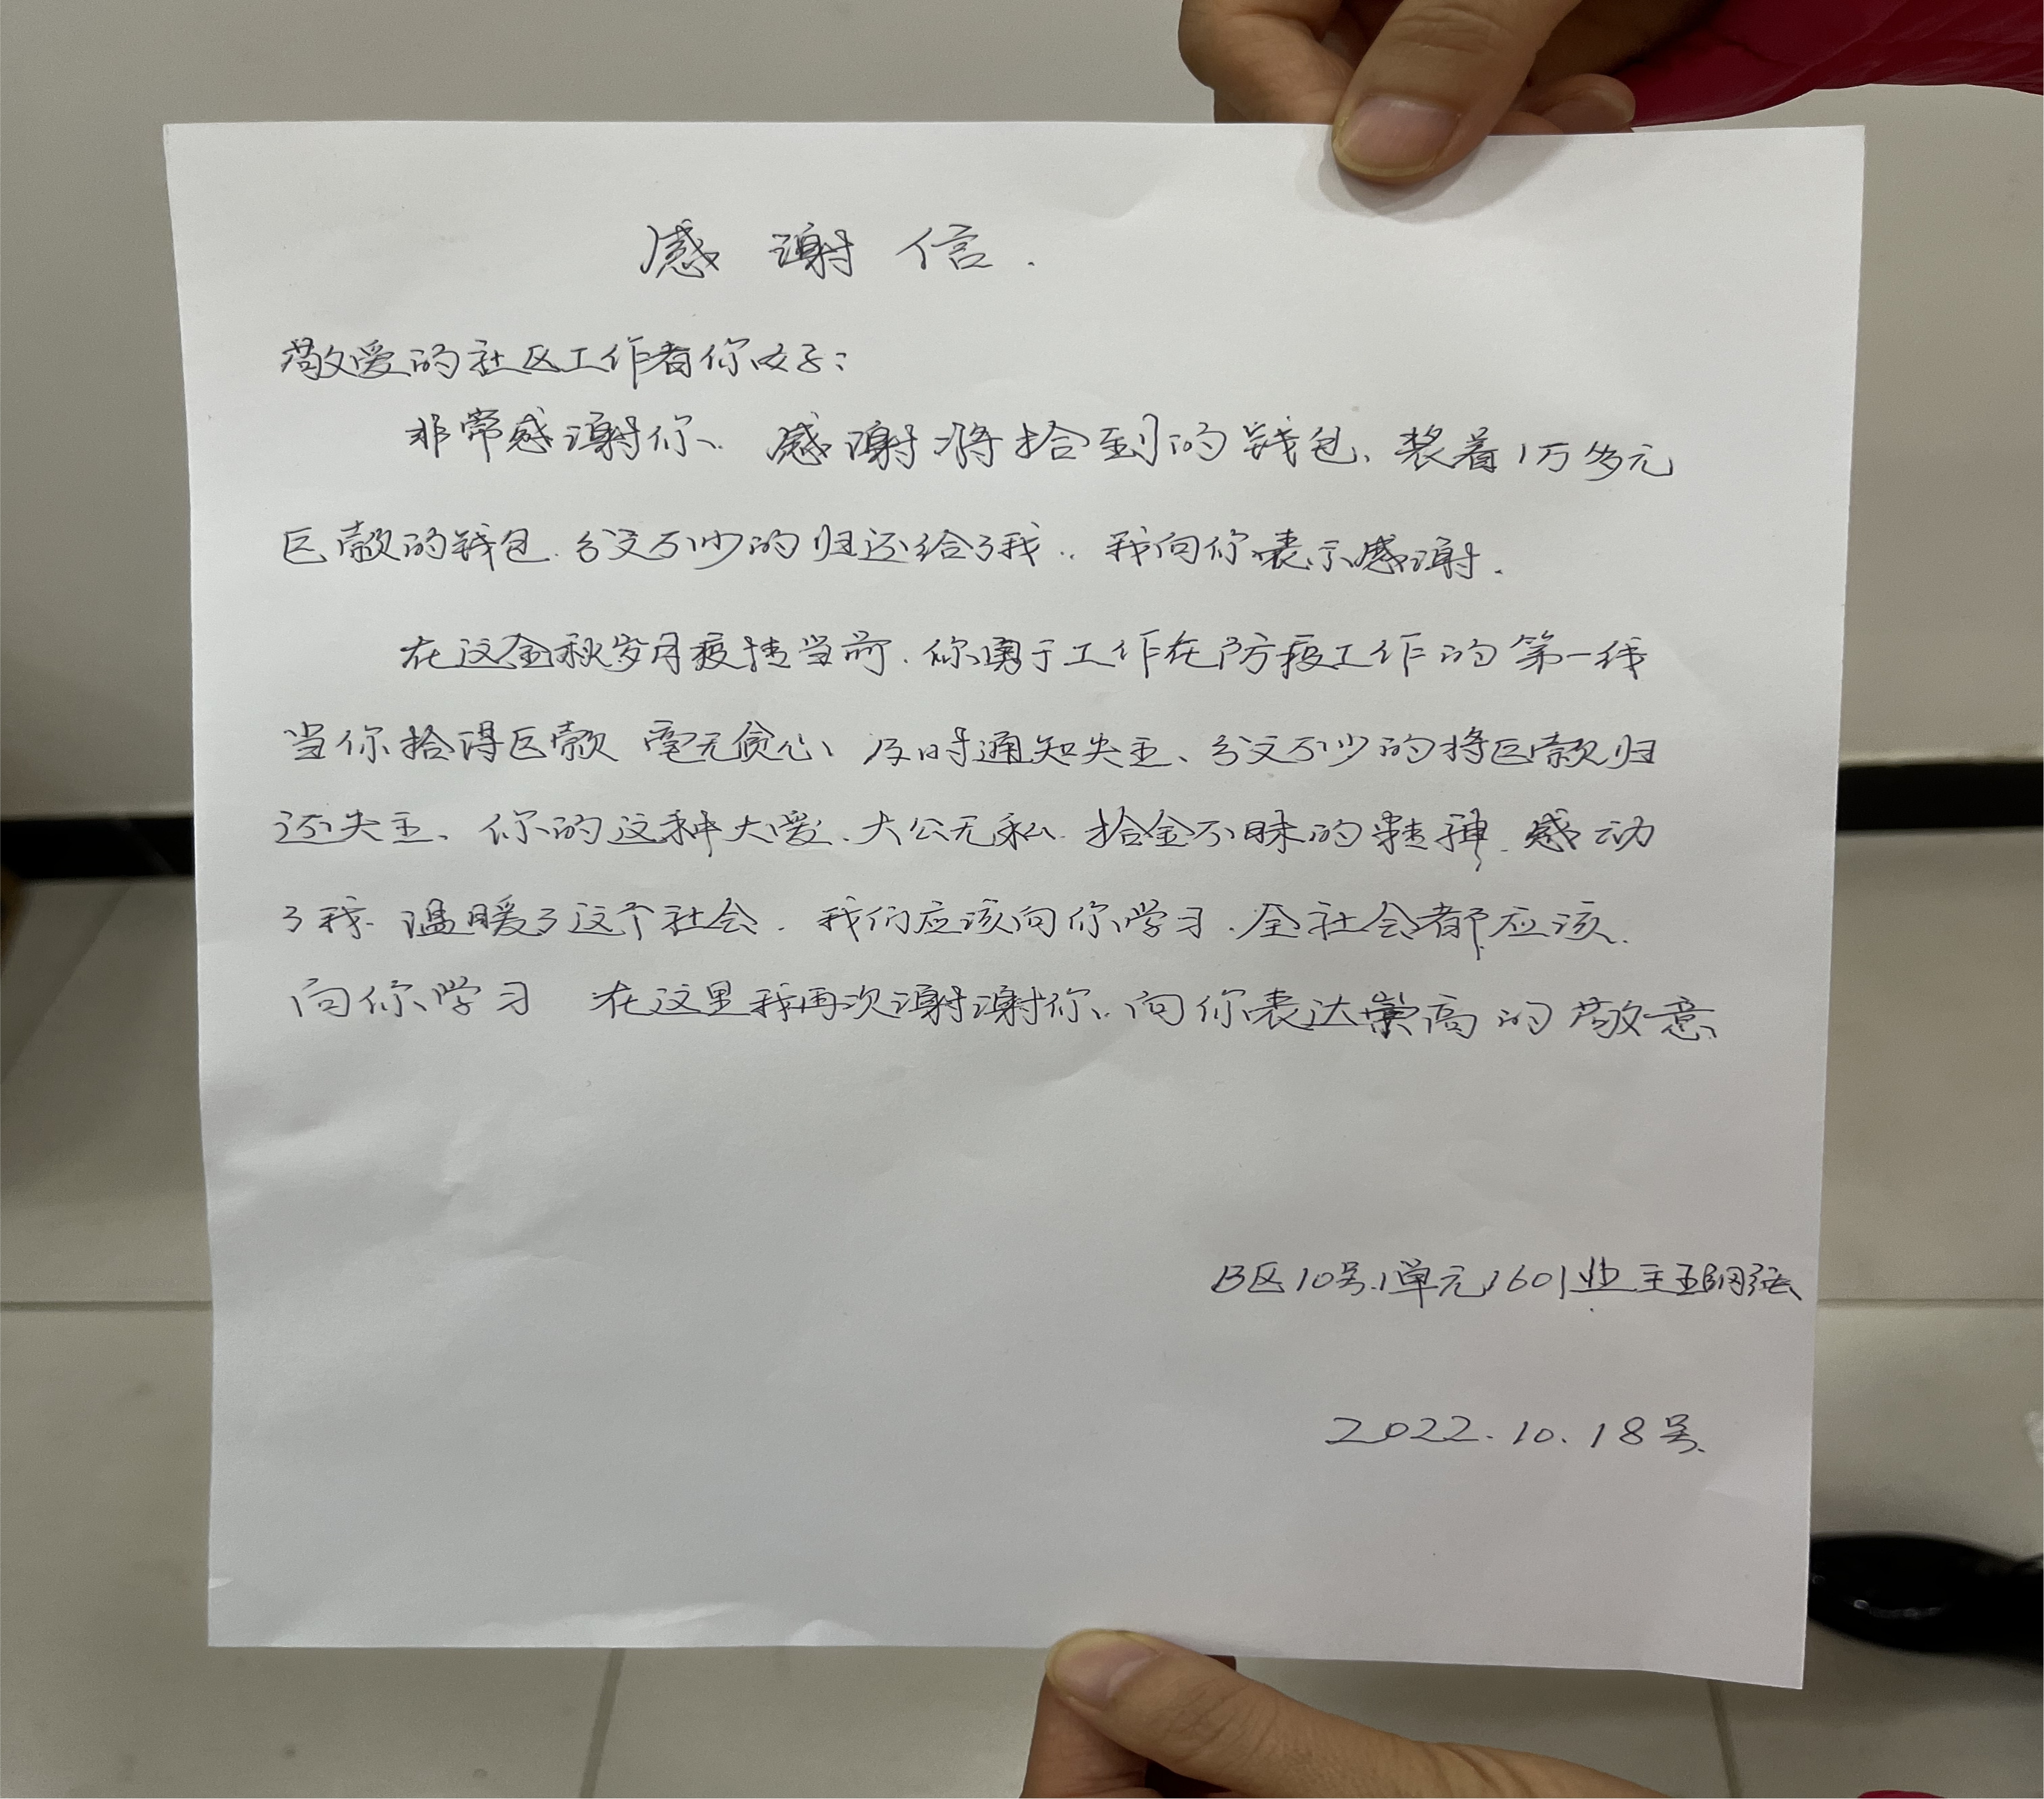 感谢信.
敬爱的社区工作者你好:
非常感谢你、感谢将拾到的钱包、装着1万多元
巨款的钱包.分文不少的归还给了我.. 我向你表示感谢.
在这金秋岁月疫情当前.你勇于工作在防疫工作的第一线
当你拾得巨款 毫无贪心、及时通知失主、分文不少的将巨款归
还失主、你的这种大爱、大公无私.拾金不昧的精神.感动
了我.温暖了这个社会.我们应该向你学习.全社会都应该.
向你学习 在这里我再次谢谢你.向你表达崇高的敬意
B区10号1单元1601业主
2022.10.18号.